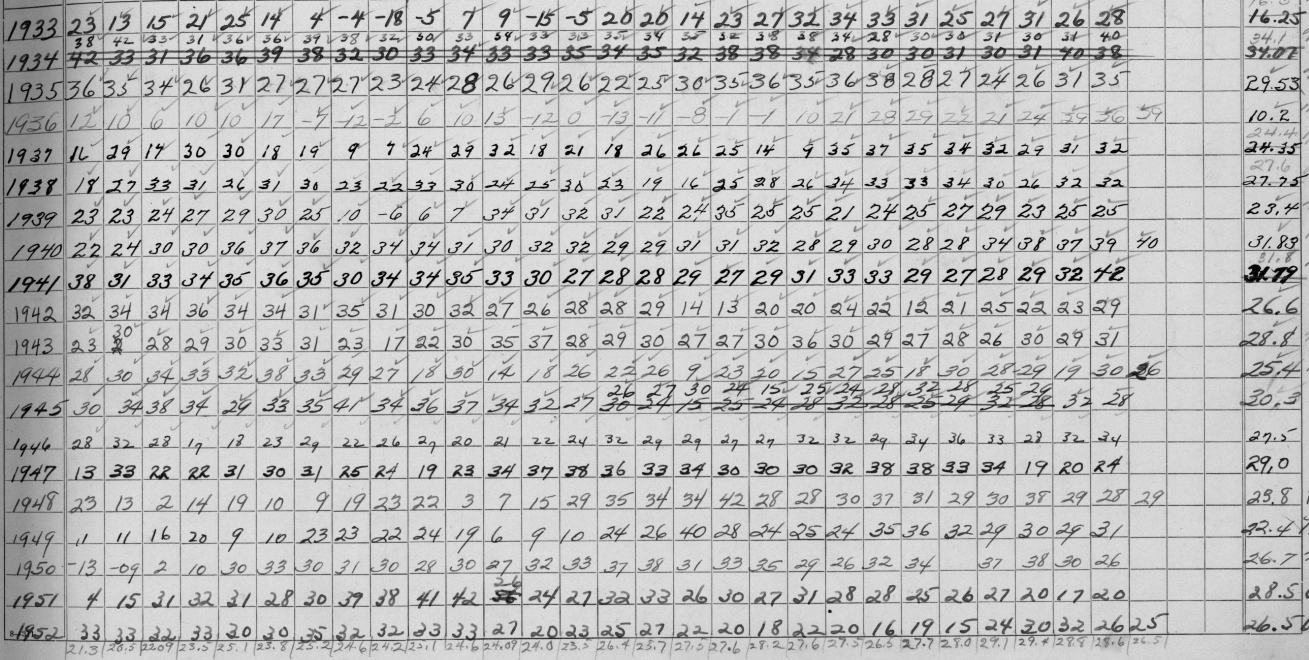 1933 23 13 15 21 25 14 4 -4 -18 -5 7 9 -15 -5 20 20 14 23 27 32 34 33 31 25 27 31 26 28 16.25
38 42 33 31 36 36 39 38 32 30 33 34 33 33 35 34 35 32 38 38 34 28 30 30 31 30 31 40 34.1
1934 42 33 31 36 36 39 38 32 30 33 34 33 33 35 34 35 32 38 38 34 28 30 30 31 30 31 40 38 34.07
1935 36 35 34 26 31 27 27 27 23 24 28 26 29 26 22 25 30 35 36 35 36 38 28 27 24 26 31 35 29.53
1936 12 10 6 10 10 17 -7 -12 -2 6 10 13 -12 0 -13 -11 -8 -1 -1 10 21 28 29 22 21 24 29 36 39 10.2
24.4
1937 16 29 17 30 30 18 19 9 7 24 29 32 18 21 18 26 26 25 14 9 35 37 35 34 32 29 31 32 24.35
27.6
1938 18 27 33 31 26 31 30 23 22 33 30 24 25 30 23 19 16 25 28 26 34 33 33 34 30 26 32 32 27.75
1939 23 23 24 27 29 30 25 10 -6 6 7 34 31 32 31 22 24 35 25 25 21 24 25 27 29 23 25 25 23.4
1940 22 24 30 30 36 37 36 32 34 34 31 30 32 32 29 29 31 31 32 28 29 30 28 28 34 38 37 39 40 31.83
31.8
1941 38 31 33 34 35 36 35 30 34 34 35 33 30 27 28 28 29 27 29 31 33 33 29 27 28 29 32 42 31.79
1942 32 34 34 36 34 34 31 35 31 30 32 27 26 28 28 29 14 13 20 20 24 22 12 21 25 22 23 29 26.6
30
1943 23 28 29 30 33 31 23 17 22 30 35 37 28 29 30 27 27 30 36 30 29 27 28 26 30 29 31 28.8
1944 28 30 34 33 32 38 33 29 27 18 30 14 18 26 22 26 9 23 20 15 27 25 18 30 28 29 19 30 26 25.4
26 27 30 24 15 25 24 28 32 28 25 29
1945 30 34 38 34 29 33 35 41 34 36 37 34 32 27 30 24 15 25 24 28 32 28 25 29 32 28 32 28 30.3
1946 28 32 28 17 18 23 29 22 26 27 20 21 22 24 32 29 29 27 27 32 32 29 34 36 33 28 32 34 27.5
1947 13 33 22 22 31 30 31 25 24 19 23 34 37 38 36 33 34 30 30 30 32 38 38 33 34 19 20 24 29.0
1948 23 13 2 14 19 10 9 19 23 22 3 7 15 29 35 34 34 42 28 28 30 37 31 29 30 38 29 28 29 23.8
1949 11 11 16 20 9 10 23 23 22 24 19 6 9 10 24 26 40 28 24 25 24 35 36 32 29 30 29 31 22.4
1950 -13 -09 2 10 30 33 30 31 30 28 30 27 32 33 37 38 31 33 35 29 26 32 34 37 38 30 26 26.7
26
1951 4 15 31 32 31 28 30 39 38 41 42 36 24 27 32 33 26 30 27 31 28 28 25 26 27 20 17 20 28.5
1952 33 33 32 33 30 30 35 32 32 33 33 27 20 23 25 27 22 20 18 22 20 16 19 15 24 30 32 26 25 26.5
21.3 20.5 22.09 23.5 25.1 25.8 25.2 24.6 24.2 25.1 24.6 24.09 24.0 23.5 26.4 25.7 27.5 27.6 28.2 27.6 27.5 26.5 27.7 28.0 29.1 29.4 28.8 28.6 26.5